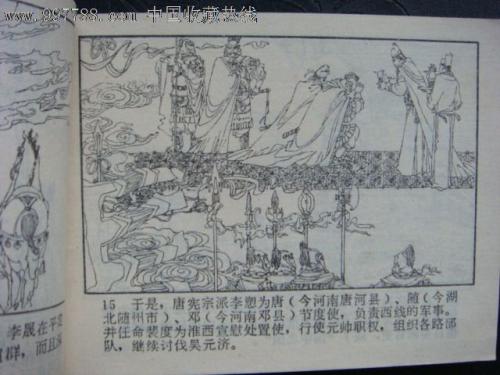 www.997788.com 中国收藏热线
15 于是，唐宪宗派李愬为唐（今河南唐河县）、随（今湖
北随州市）、邓（今河南邓县）节度使，负责西线的军事。
并任命裴度为淮西宣慰处置使，行使元帅职权，组织各路部
队，继续讨伐吴元济。
李晟在平
群，而且